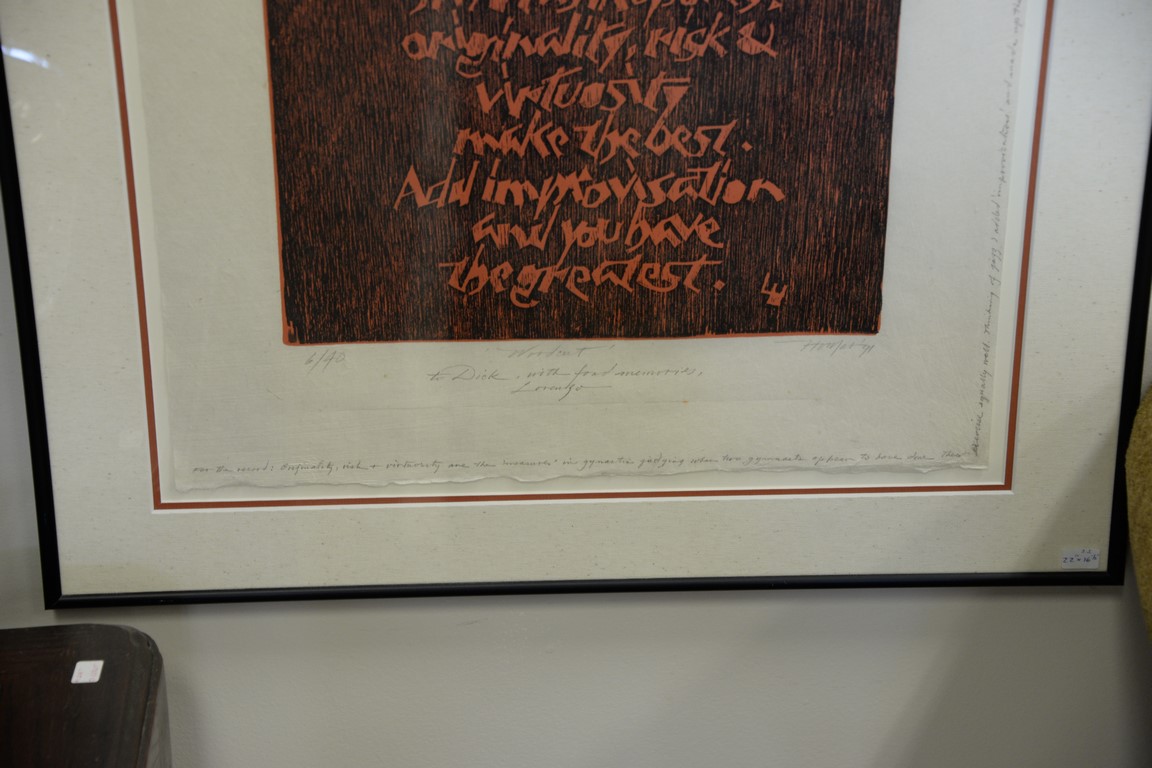 originality, risk &
virtuosity
make the best.
Add improvisation
and you have
the greatest.
6/40 "Woodcut"
to Dick, with fond memories,
Lorenzo
for the record: originality, risk + virtuosity are the measures in gymnastic judging when two gymnasts appear to have done their
exercise equally well. thinking of jazz I added improvisation and made